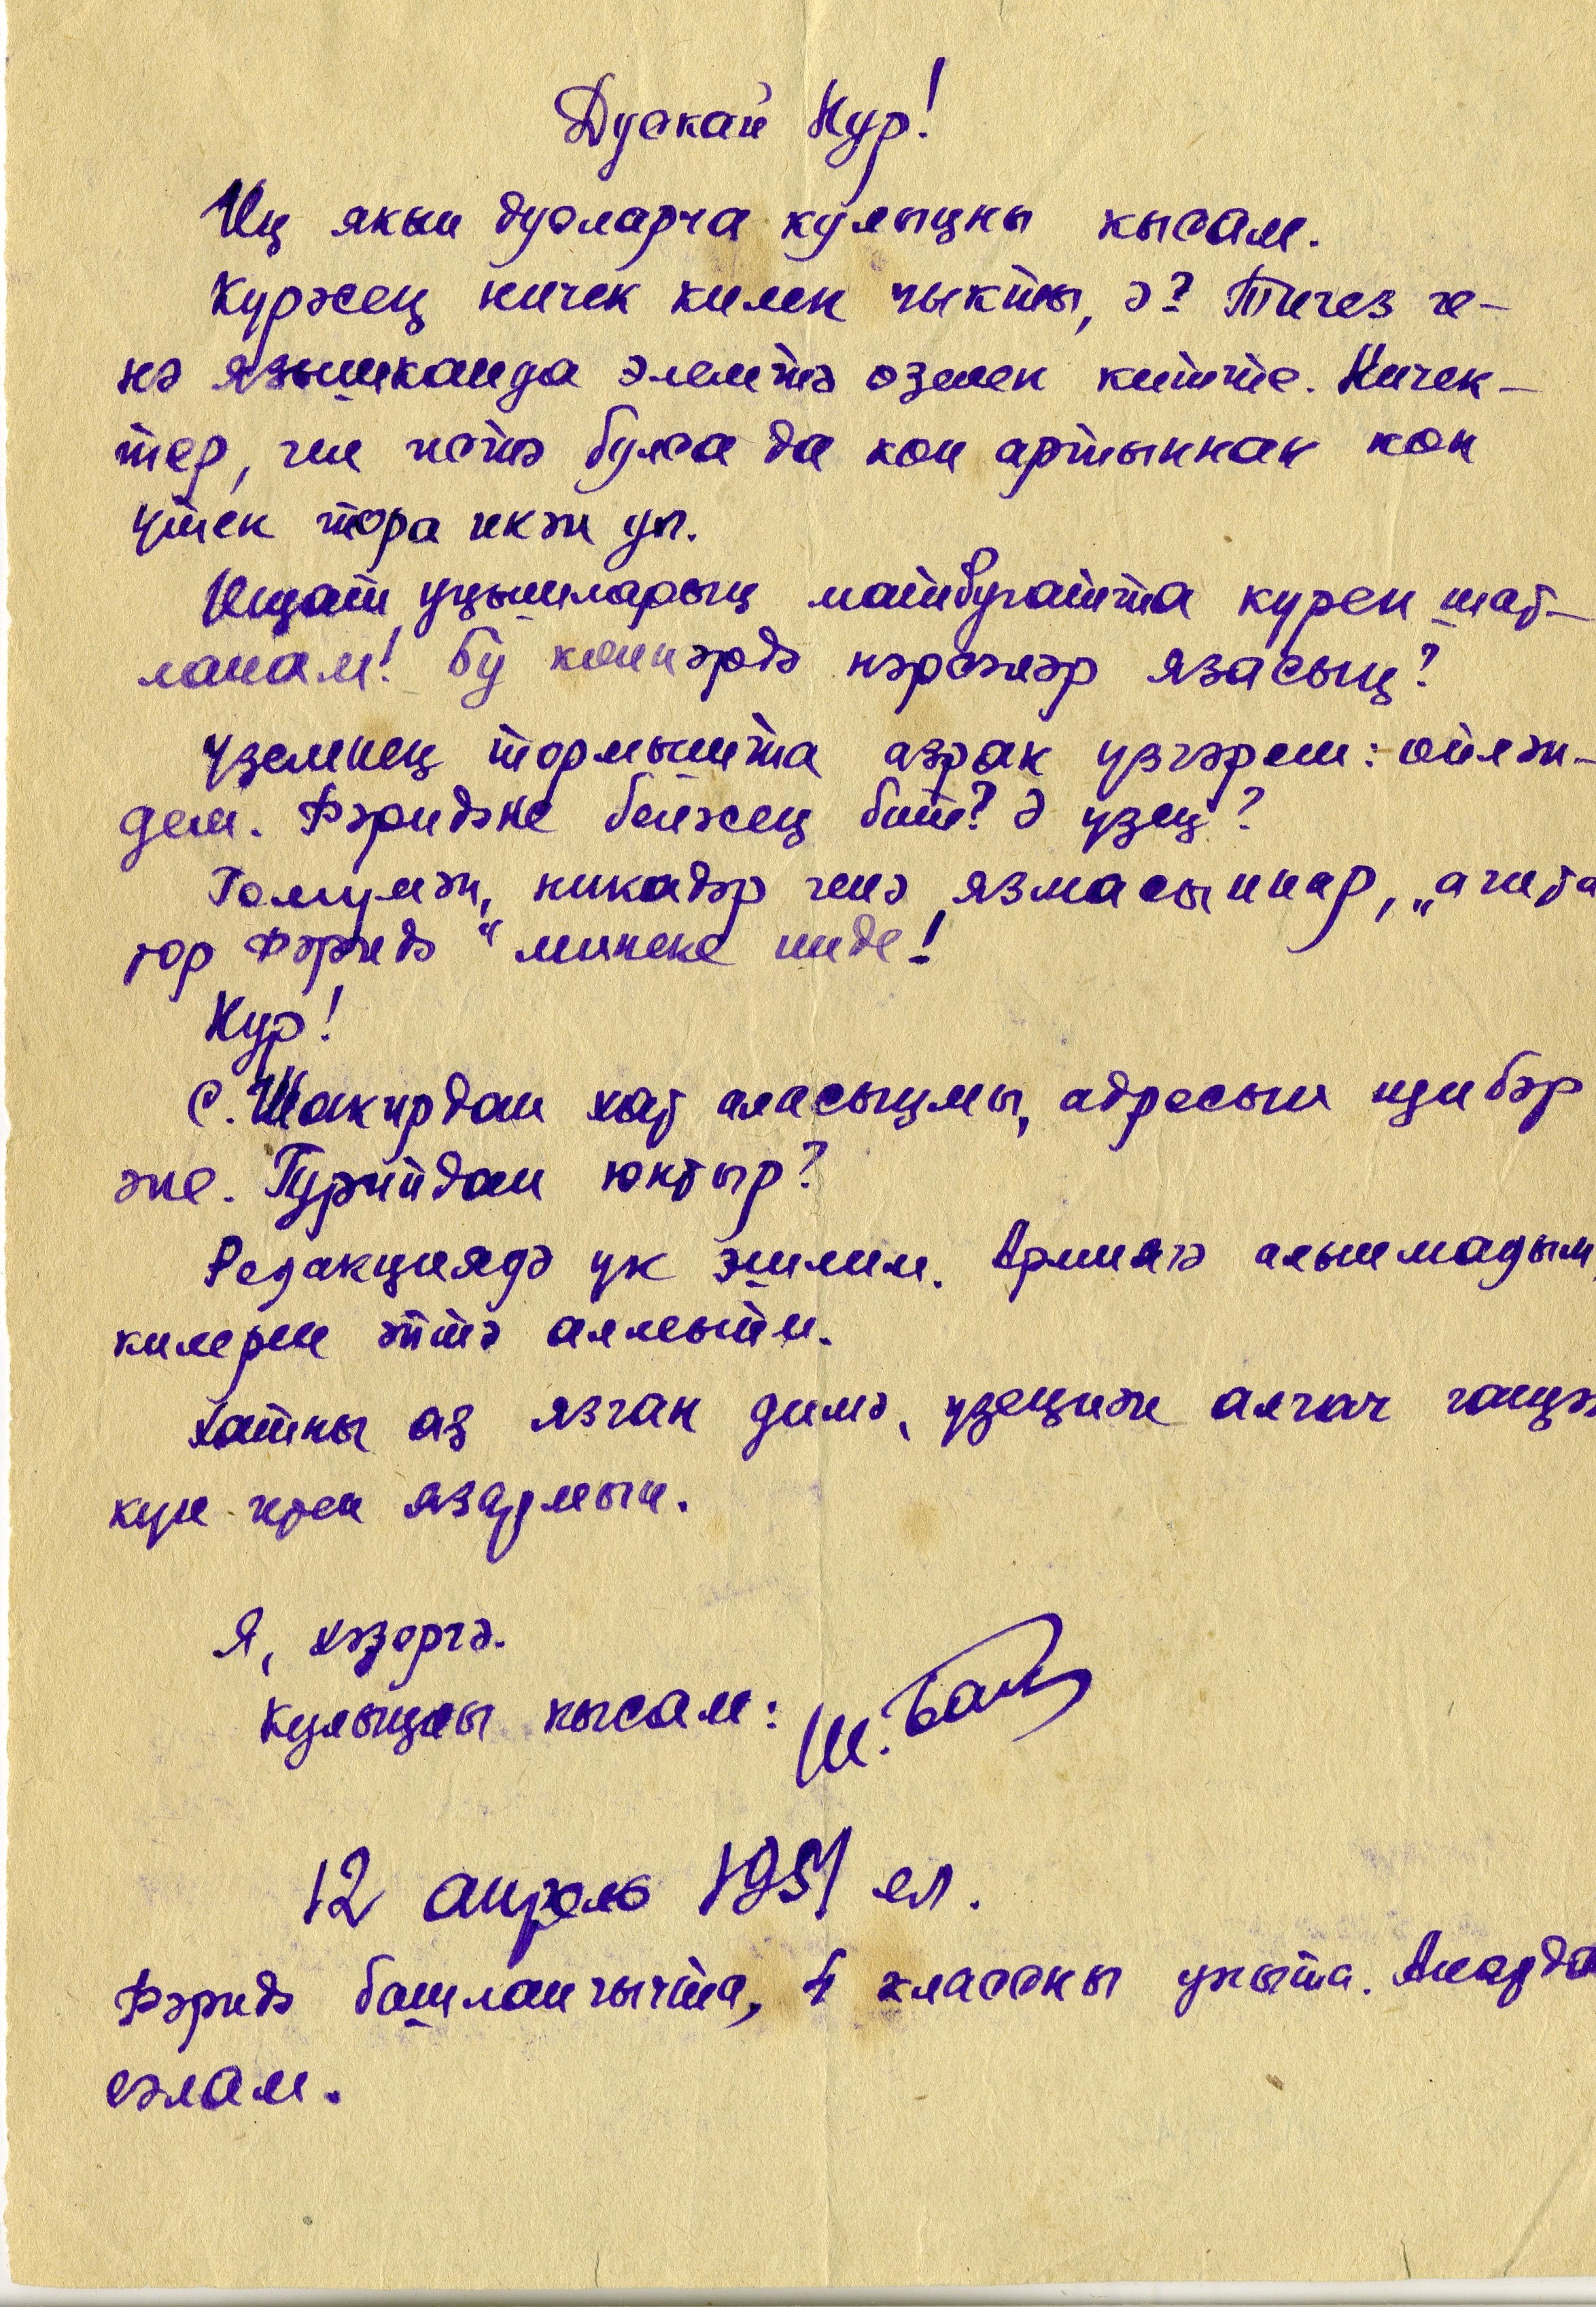 Дускай Нур!
Иң якын дусларча кулыңны кысам.
Күрәсең ничек килеп чыкты, ә? Тигез ге-
нә язышканда элемтә өзелеп китте. Ничек-
тер, әллә нәстә булса да көн артыннан көн
үтеп тора икән ул.
Иҗат уңышларың матбугатта күреп шат-
ланам! Бу көннәрдә нәрсәләр язасың?
Үземнең тормышта азрак үзгәреш: өйлән-
дем. Фәридәне беләсең бит? Ә үзең?
Гомумән, никадәр генә язмасыннар, „агита
тор Фәридә“ минеке инде!
Нур!
С. Шакирдан хат аласыңмы, адресын җибәр
әле. Гурийдан юктыр?
Редакциядә үк эшлим. Армиягә алынмадым,
килерен әйтә алмыйм.
Хатны аз язган димә, үзеңнән алгач
күп итеп язармын.
Я, хәзергә.
Кулыңны кысам: Ш. Бат
12 апрель 1951 ел.
Фәридә башлангычта, 4 классны укыта. Аңардан
сәлам.